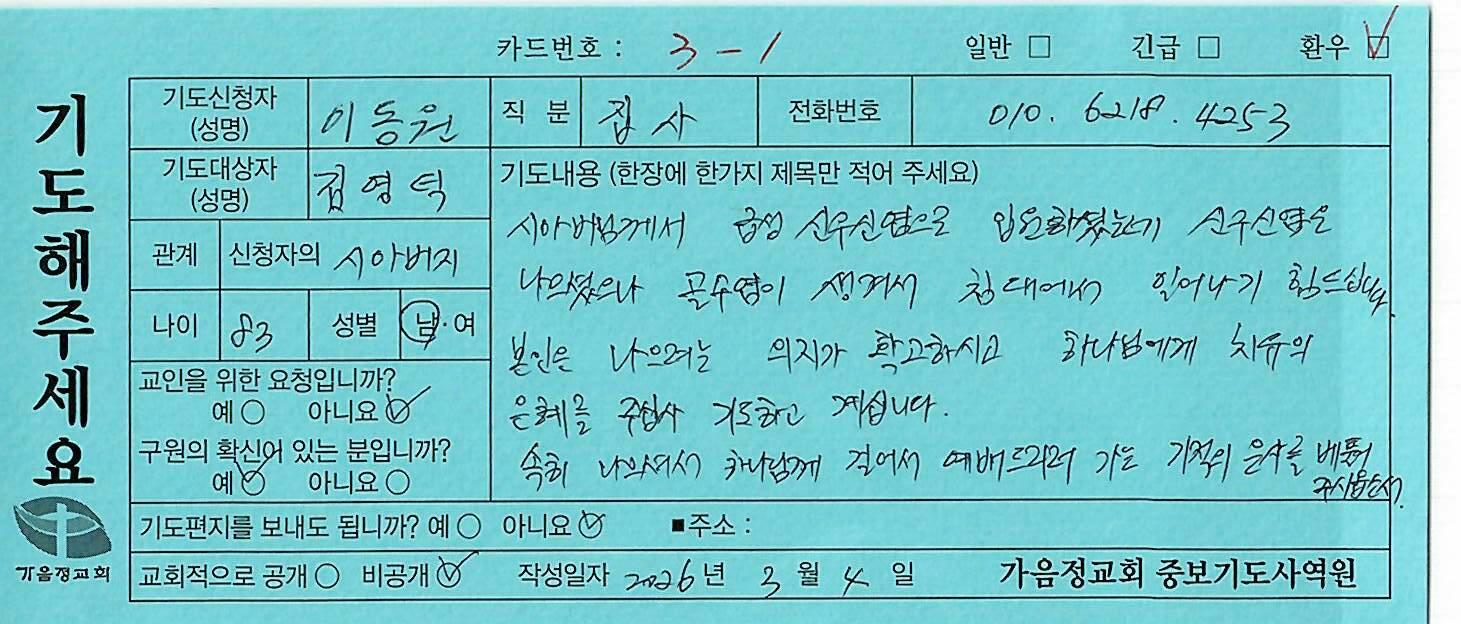 카드번호 : 3 - 1 일반 □ 긴급 □ 환우 ☑
기도해주세요
기도신청자 (성명) 이동원 직 분 집사 전화번호 010. 6218. 4253
기도대상자 (성명) 김영덕
관계 신청자의 시아버지
나이 83 성별 남·여
교인을 위한 요청입니까?
예 ○ 아니요 ☑
구원의 확신이 있는 분입니까?
예 ☑ 아니요 ○
기도내용 (한장에 한가지 제목만 적어 주세요)
시아버님께서 급성 신우신염으로 입원하셨는데 신우신염은
나으셨으나 골수염이 생겨서 침대에서 일어나기 힘드십니다.
본인은 나으려는 의지가 확고하시고 하나님에게 치유의
은혜를 주십사 기도하고 계십니다.
속히 나으셔서 하나님께 걸어서 예배드리러 가는 기적의 은사를 베풀어
주시옵소서.
기도편지를 보내도 됩니까? 예 ○ 아니요 ☑ ■주소 :
교회적으로 공개 ○ 비공개 ☑ 작성일자 2026 년 3 월 4 일 가음정교회 중보기도사역원
가음정교회